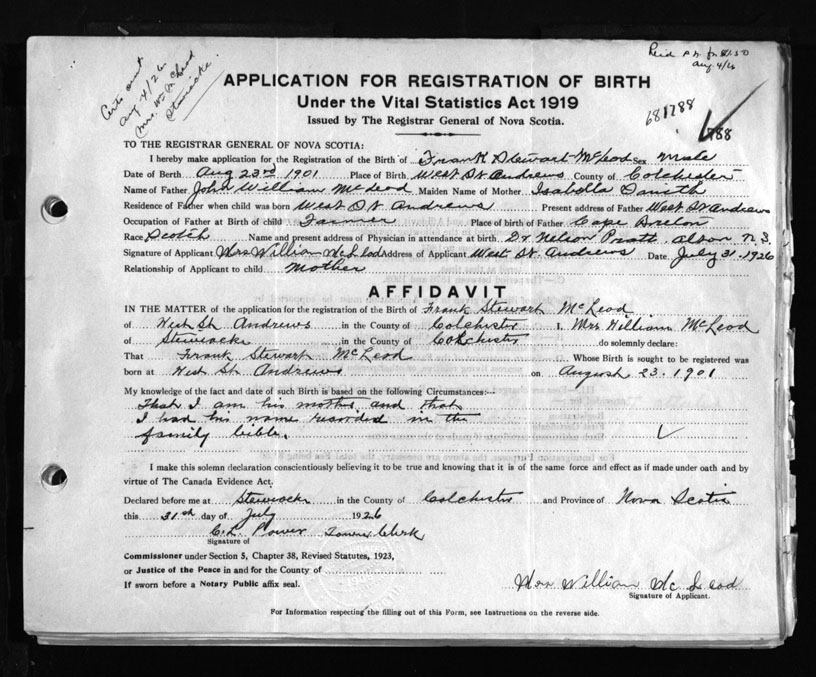 Certs sent
Aug 4/26
Mrs. Wm McLeod
Stewiacke
Aug 4/26
681788
788
APPLICATION FOR REGISTRATION OF BIRTH
Under the Vital Statistics Act 1919
Issued by The Registrar General of Nova Scotia.
TO THE REGISTRAR GENERAL OF NOVA SCOTIA:
I hereby make application for the Registration of the Birth of Frank Stewart McLeod Sex Male
Date of Birth Aug 23rd 1901 Place of Birth West St Andrews County of Colchester
Name of Father John William McLeod Maiden Name of Mother Isabella
Residence of Father when child was born West St Andrews Present address of Father West St Andrews
Occupation of Father at Birth of child Farmer Place of birth of Father Cape Breton
Race Scotch Name and present address of Physician in attendance at birth Dr Nelson N.S.
Signature of Applicant Mrs William McLeod Address of Applicant West St. Andrews Date July 31. 1926
Relationship of Applicant to child Mother
AFFIDAVIT
IN THE MATTER of the application for the registration of the Birth of Frank Stewart McLeod
of West St. Andrews in the County of Colchester I, Mrs William McLeod
of Stewiacke in the County of Colchester do solemnly declare:
That Frank Stewart McLeod Whose Birth is sought to be registered was
born at West St. Andrews on August 23. 1901
My knowledge of the fact and date of such Birth is based on the following Circumstances:—
That I am his mother and that
I had his name recorded in the
family bible.
I make this solemn declaration conscientiously believing it to be true and knowing that it is of the same force and effect as if made under oath and by
virtue of The Canada Evidence Act.
Declared before me at Stewiacke in the County of Colchester and Province of Nova Scotia
this 31st day of July 1926
C. L. Power Town Clerk
Signature of
Commissioner under Section 5, Chapter 38, Revised Statutes, 1923,
or Justice of the Peace in and for the County of
If sworn before a Notary Public affix seal.
Mrs William McLeod
Signature of Applicant.
For Information respecting the filling out of this Form, see Instructions on the reverse side.